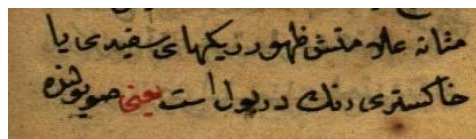 مثانه علامتش ظهور ریکهای سفیدی یا
خاکستری رنك در بول است یعنی